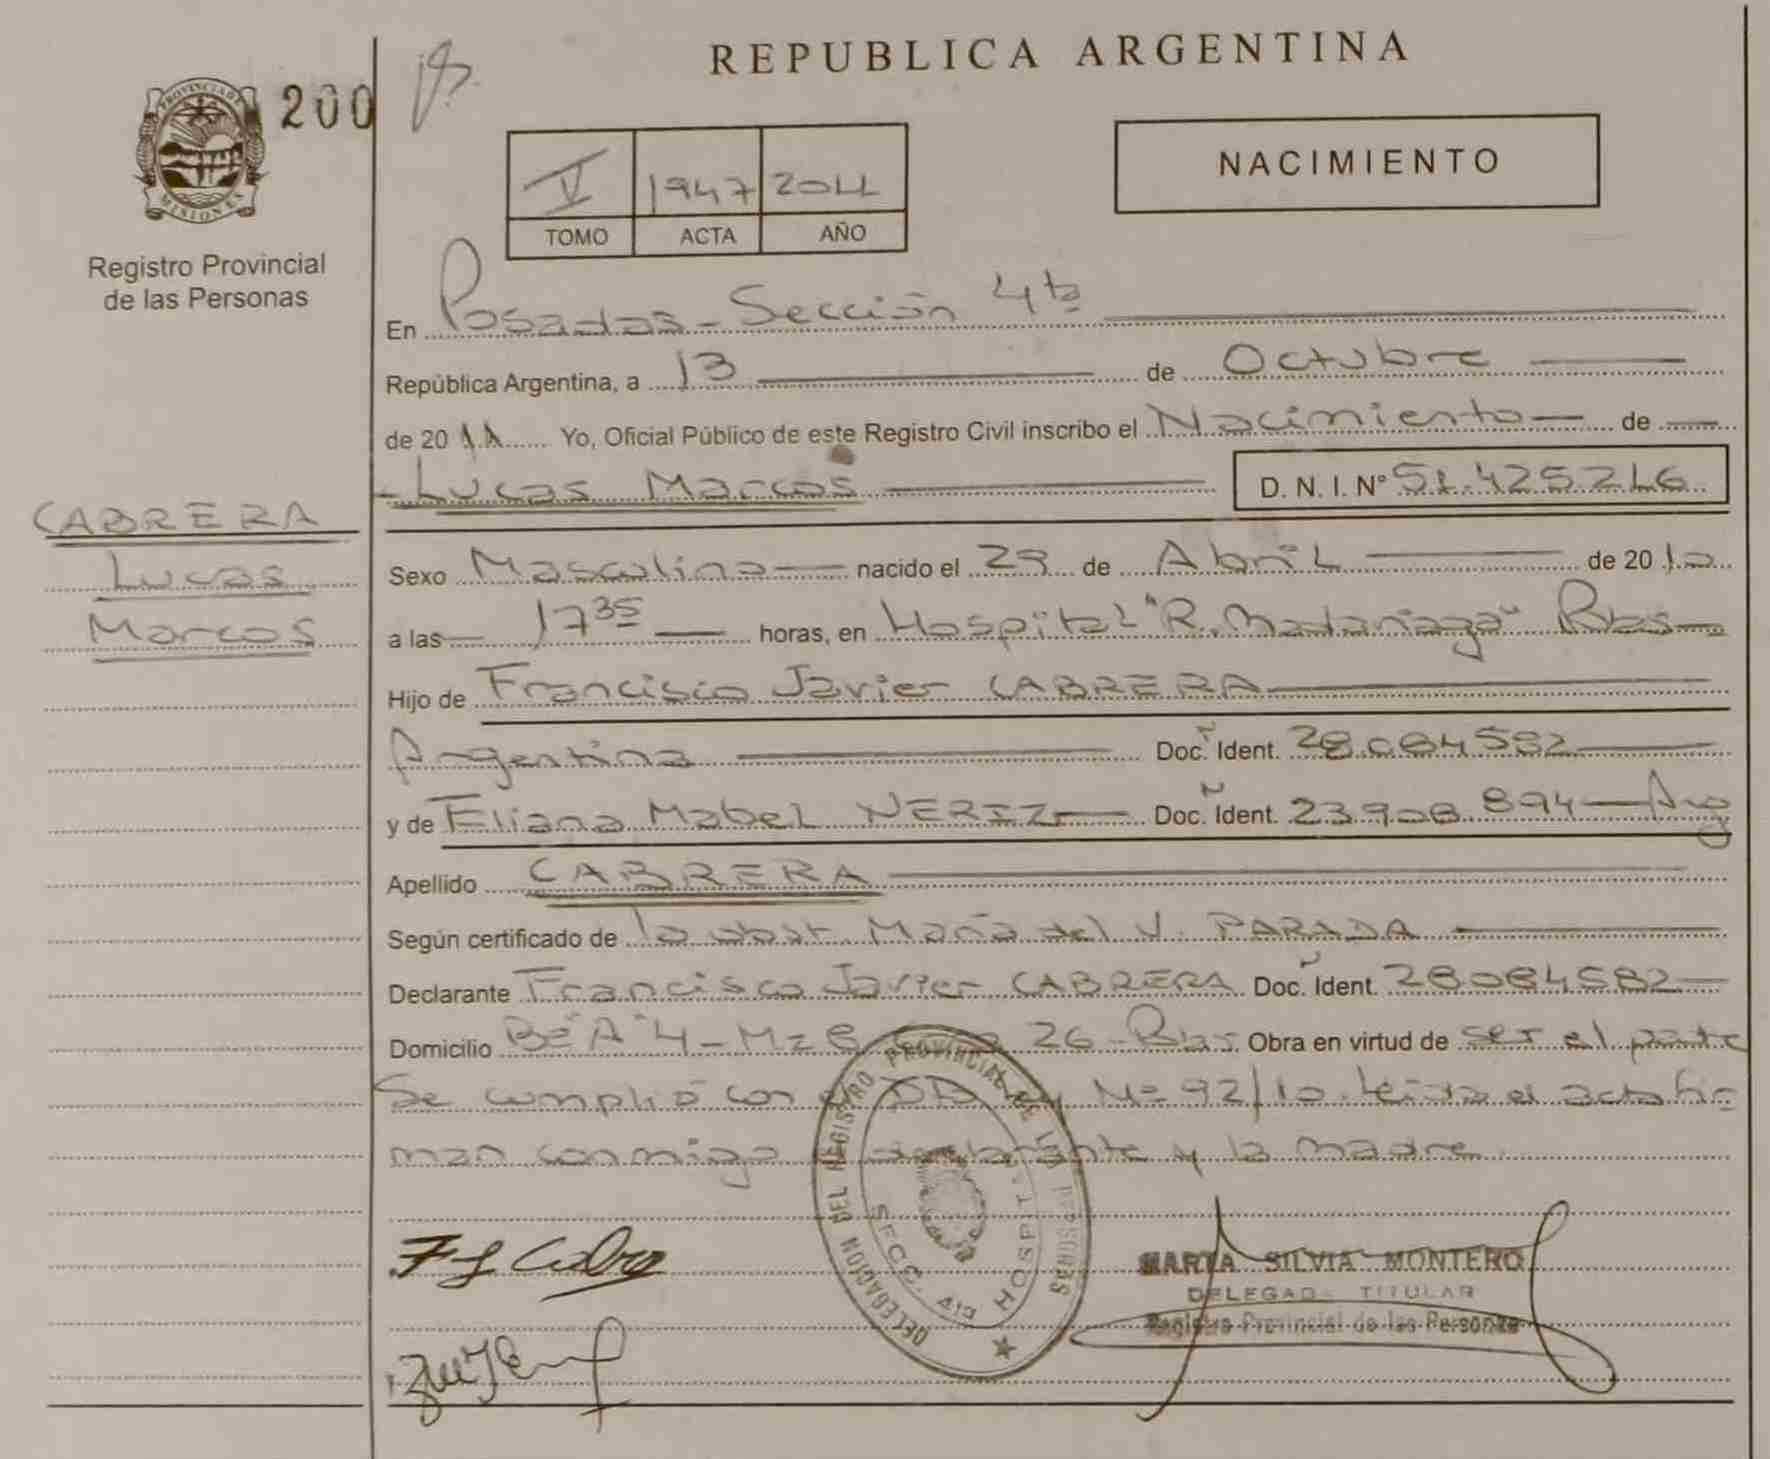 REPUBLICA ARGENTINA
200
PROVINCIA DE MISIONES
Registro Provincial
de las Personas
V 1947 2011
TOMO ACTA AÑO
NACIMIENTO
En Posadas - Sección 4ta
República Argentina, a 13 de Octubre
de 2011 Yo, Oficial Público de este Registro Civil inscribo el Nacimiento de
Lucas Marcos D. N. I. Nº 51.425216
CABRERA
Lucas
Marcos
Sexo Masculino nacido el 29 de Abril de 2010
a las 17 35 horas, en Hospital "R. Madariaga" Pdas
Hijo de Francisco Javier CABRERA
Argentina Doc. Ident. 28.084582
y de Eliana Mabel NEREZ Doc. Ident. 23.908.894 - Arg
Apellido CABRERA
Según certificado de la obst María del V. PARADA
Declarante Francisco Javier CABRERA Doc. Ident. 28084582
Domicilio Bº "A" 4 - Mz 8 26 - Pdas Obra en virtud de ser el padre
Se cumplió con Nº 92/10. Leída el acta fir
man conmigo declarante y la madre.
DELEGACION DEL REGISTRO PROVINCIAL DE LAS PERSONAS
SECC. 4ta HOSPITAL
MARTA SILVIA MONTERO
DELEGADA TITULAR
Registro Provincial de las Personas